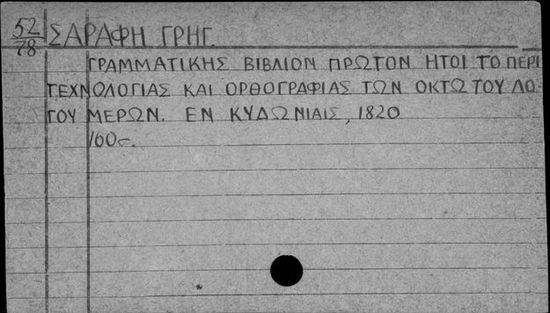 52
78
ΣΑΡΑΦΗ ΓΡΗΓ.
ΓΡΑΜΜΑΤΙΚΗΣ ΒΙΒΛΙΟΝ ΠΡΩΤΟΝ ΗΤΟΙ ΤΟ ΠΕΡΙ
ΤΕΧΝΟΛΟΓΙΑΣ ΚΑΙ ΟΡΘΟΓΡΑΦΙΑΣ ΤΩΝ ΟΚΤΩ ΤΟΥ ΛΟ-
ΓΟΥ ΜΕΡΩΝ. ΕΝ ΚΥΔΩΝΙΑΙΣ, 1820
160σ.